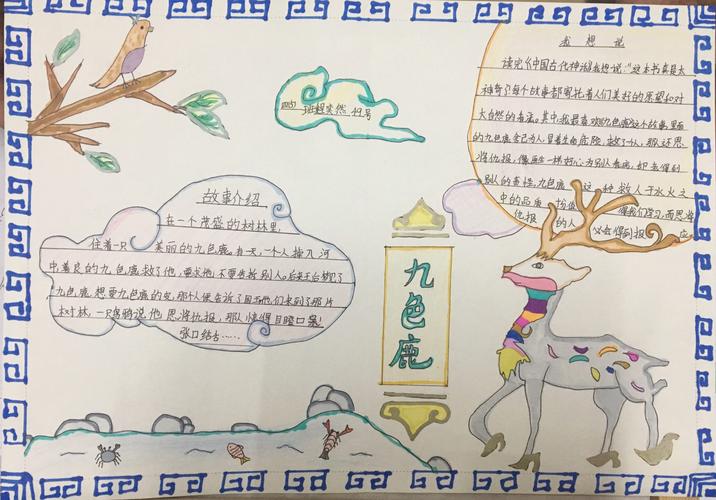 四(1) 班 赵奕然 49号
故事介绍
在一个茂盛的树林里,
住着一只 美丽的九色鹿。有一天,一个人掉入河
中善良的九色鹿救了他,要求他不要告诉别人。后来王后梦见了
九色鹿,想要九色鹿的皮,那个人便告诉了国王他们来到了那片
树林,一只乌鸦说他恩将仇报,那人惊得目瞪口呆!
张口结舌……
九色鹿
我想说
读完《中国古代神话》我想说:"这本书真是太
神奇了每个故事都寄托着人们美好的愿望和对
大自然的 其中,我最喜欢的九色鹿这个故事,里面
的九色鹿舍己为人,冒着生命危险,救了人,那人还恩
将仇报,像画 一样 好心为别人 却
别人的 九色鹿 这一种 救人于水火之
中的品质 值 得我们学习,而恩将
仇报 的人 必会得到报 应。